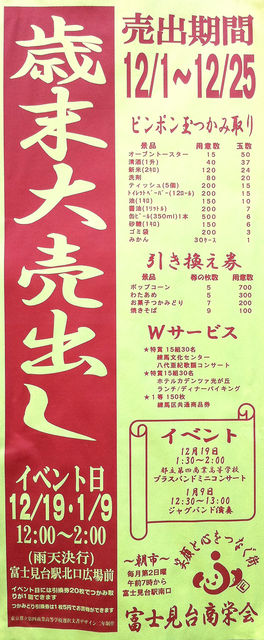 歳末大売出し
イベント日
12/19・1/9
12:00〜2:00
(雨天決行)
富士見台駅北口広場前
イベント日には引換券20枚でつかみ取りが1回できます
つかみどり引換券は1枚5円でお買物ができます
売出期間
12/1〜12/25
ピンポン玉つかみ取り
景品 用意数 玉数
オーブントースター 15 50
清酒(1升) 40 37
新米(2キロ) 120 24
洗剤 80 20
ティッシュ(5個) 200 15
トイレットペーパー(12ロール) 200 15
油(1キロ) 150 10
醤油(1リットル) 200 7
缶ビール(350ml)1本 500 6
砂糖(1キロ) 150 6
ゴミ袋 200 3
みかん 30ケース 1
引き換え券
景品 券の枚数 用意数
ポップコーン 5 700
わたあめ 5 300
お菓子つかみどり 7 200
焼きそば 9 100
Wサービス
★特賞15組30名
練馬文化センター
八代亜紀歌謡コンサート
★特賞15組30名
ホテルカデンツァ光が丘
ランチ/ディナーバイキング
★1等 150枚
練馬区共通商品券
イベント
12月19日
1:30〜2:00
都立第四商業高等学校
ブラスバンドミニコンサート
1月9日
12:30〜13:00
ジャグバンド演奏
〜朝市〜
毎月第2日曜
午前7時から
富士見台駅南口
笑顔と心をつなぐ街
富士見台商栄会